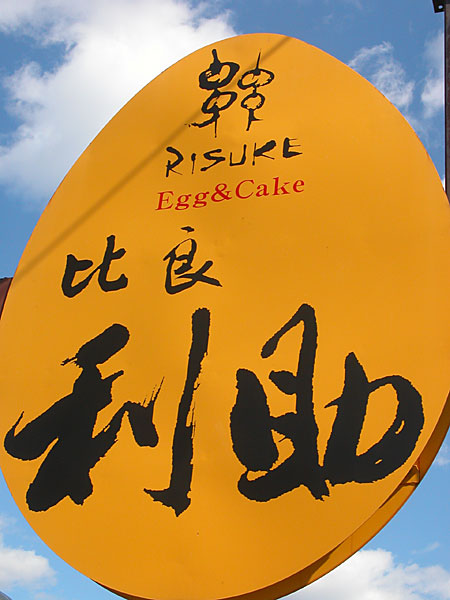 RISUKE
Egg&Cake
比良
利助